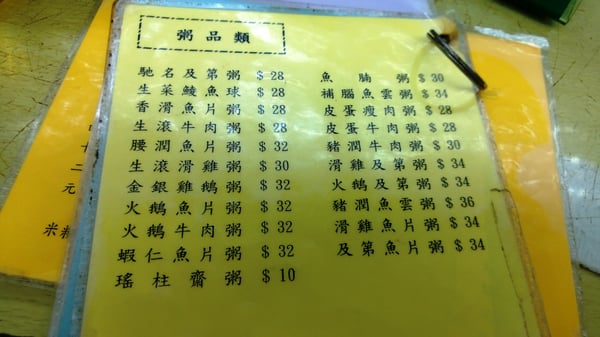 粥品類
馳名及第粥 $ 28
生菜鯪魚球 $ 28
香滑魚片粥 $ 28
生滾牛肉粥 $ 28
腰潤魚片粥 $ 32
生滾滑雞粥 $ 30
金銀雞鵝粥 $ 32
火鵝魚片粥 $ 32
火鵝牛肉粥 $ 32
蝦仁魚片粥 $ 32
瑤柱齋粥 $ 10
魚腩粥 $ 30
補腦魚雲粥 $ 34
皮蛋瘦肉粥 $ 28
皮蛋牛肉粥 $ 28
豬潤牛肉粥 $ 30
滑雞及第粥 $ 34
火鵝及第粥 $ 34
豬潤魚雲粥 $ 36
滑雞魚片粥 $ 34
及第魚片粥 $ 34
十
二
元
米粉